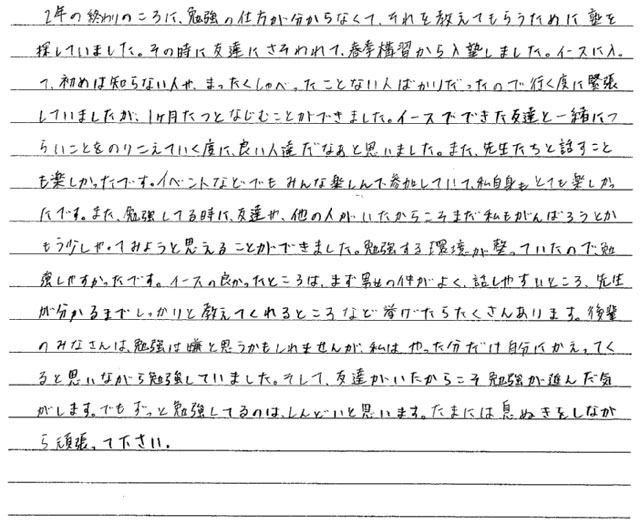 2年の終わりのころに、勉強の仕方が分からなくて、それを教えてもらうために塾を
探していました。その時に友達にさそわれて、春季講習から入塾しました。イースに入っ
て、初めは知らない人や、まったくしゃべったことない人ばかりだったので行く度に緊張
していましたが、1ヶ月たつとなじむことができました。イースでできた友達と一緒につ
らいことをのりこえていく度に、良い人達だなぁと思いました。また、先生たちと話すこと
も楽しかったです。イベントなどでもみんな楽しんで参加していて、私自身もとても楽しかっ
たです。また、勉強してる時に、友達や、他の人がいたからこそまだ私もがんばろうとか
もう少しやってみようと思えることができました。勉強する環境が整っていたので、勉
強しやすかったです。イースの良かったところは、まず男女の仲がよく、話しやすいところ、先生
が分かるまでしっかりと教えてくれるところなど挙げたらたくさんあります。後輩
のみなさんは、勉強は嫌と思うかもしれませんが、私は、やった分だけ自分にかえってく
ると思いながら勉強していました。そして、友達がいたからこそ勉強が進んだ気
がします。でもずっと勉強してるのは、しんどいと思います。たまには息ぬきをしなが
ら頑張って下さい。